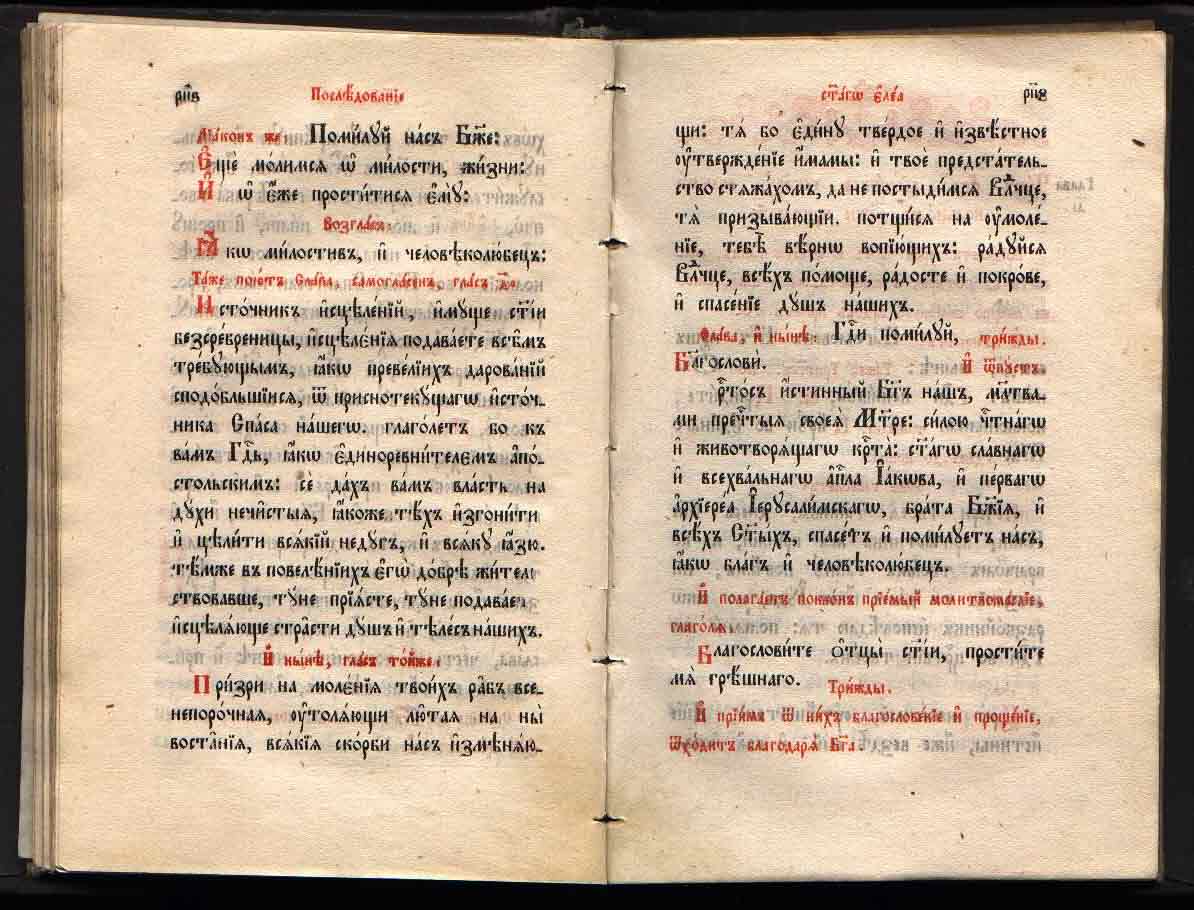 рп҃в
Послѣ́дованїе
Дїа́конъ же: Поми́лꙋй на́съ Бж҃е:
Е҆щѐ мо́лимсѧ ѡ҆ ми́лости, жи́зни:
И҆ ѡ҆ є҆́же прости́тисѧ є҆мꙋ̀:
Возгла́съ:
Ꙗ҆́кѡ ми́лостивъ, и҆ человѣколю́бецъ:
Та́же пою́тъ Сла́ва, самогла́сенъ, гла́съ д҃.
И҆сто́чникъ и҆сцѣле́нїй, и҆мꙋ́ще ст҃і́и
безсре́бреницы, и҆сцѣлє́нїѧ подава́ете всѣ̑мъ
тре́бꙋющымъ, ꙗ҆́кѡ превели́ихъ дарова́нїй
сподо́бльшїисѧ, ѿ приснотекꙋ́щагѡ и҆сто́ч-
ника Спа́са на́шегѡ. глаго́летъ бо къ
ва́мъ Гдⷭ҇ь, ꙗ҆́кѡ є҆диноревни́телємъ а҆по́-
стѡльскимъ: сѐ да́хъ ва́мъ вла́сть на
дꙋ́хи нечи́стыѧ, ꙗ҆́коже тѣ́хъ и҆згони́ти
и҆ цѣли́ти всѧ́кїй недꙋ́гъ, и҆ всѧ́кꙋ ꙗ҆́зю.
тѣ́мже въ повелѣ́нїихъ є҆гѡ̀ до́брѣ жи́тель
ствовавше, тꙋ́не прїѧ́сте, тꙋ́не подава́ет
и҆сцѣлѧ́юще стра̑сти дꙋ́шъ и҆ тѣле́съ на́шихъ.
И҆ ны́нѣ, гла́съ то́йже:
При́зри на молє́нїѧ твои́хъ ра̑бъ все-
непоро́чнаѧ, ᲂу҆толѧ́ющи лю̑таѧ на ны̀
воста̑нїѧ, всѧ́кїѧ ско́рби на́съ и҆змѣнѧ́ю-
ст҃а́гѡ є҆ле́а
рп҃г
щи: тѧ́ бо є҆ди́нꙋ тве́рдое и҆ и҆звѣ́стное
ᲂу҆твержде́нїе и҆́мамы: и҆ твоѐ предста́тель-
ство стѧжа́хомъ, да не постыди́мсѧ Влⷣчце,
тѧ̀ призыва́ющїи. потщи́сѧ на ᲂу҆моле́-
нїе, тебѣ̀ вѣ́рнѡ вопїю́щихъ: ра́дꙋйсѧ
Влⷣчце, всѣ́хъ по́моще, ра́досте и҆ покро́ве,
и҆ спасе́нїе дꙋ́шъ на́шихъ.
Сла́ва, и҆ ны́нѣ: Гдⷭ҇и поми́лꙋй, три́жды.
Бл҃гословѝ. И҆ ѿпꙋ́стъ.
рⷭ҇то́съ и҆́стинный Бг҃ъ на́шъ, мл҃тва-
ми пречⷭ҇тыѧ своеѧ̀ Мт҃ре: си́лою чⷭ҇тна́гѡ
и҆ животворѧ́щагѡ крⷭ҇та̀: ст҃а́гѡ сла́внагѡ
и҆ всехва́льнагѡ а҆пⷭ҇ла І҆а́кѡва, и҆ пе́рвагѡ
а҆рхїере́а І҆ерⷭ҇ꙋсали́мскагѡ, бра́та Бж҃їѧ, и҆
всѣ́хъ Ст҃ы́хъ, спасе́тъ и҆ поми́лꙋетъ на́съ,
ꙗ҆́кѡ бл҃гъ и҆ человѣколю́бецъ.
И҆ полага́етъ покло́нъ прїе́мый молитвосло́вїе,
глаго́лѧ:
Благослови́те ѻ҆тцы̀ ст҃і́и, прости́те
мѧ̀ грѣ́шнаго. Три́жды.
И҆ прїи́мъ ѿ ни́хъ благослове́нїе и҆ проще́нїе,
ѿхо́дитъ благодарѧ̀ Бг҃а.